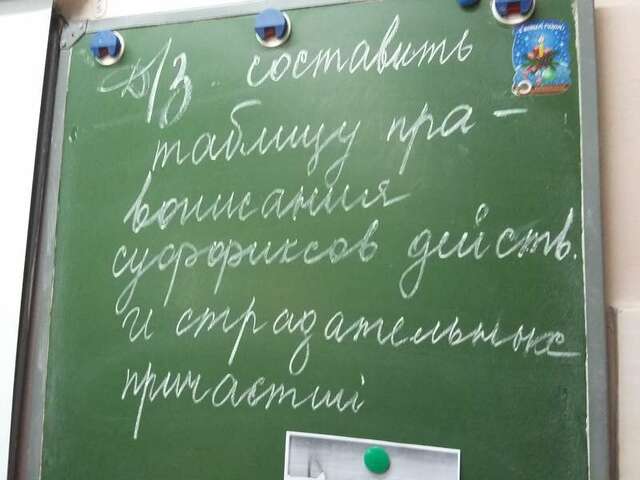 Д/З. составить
таблицу пра-
вописания
суффиксов действ.
и страдательных
причастий
С НОВЫМ ГОДОМ!